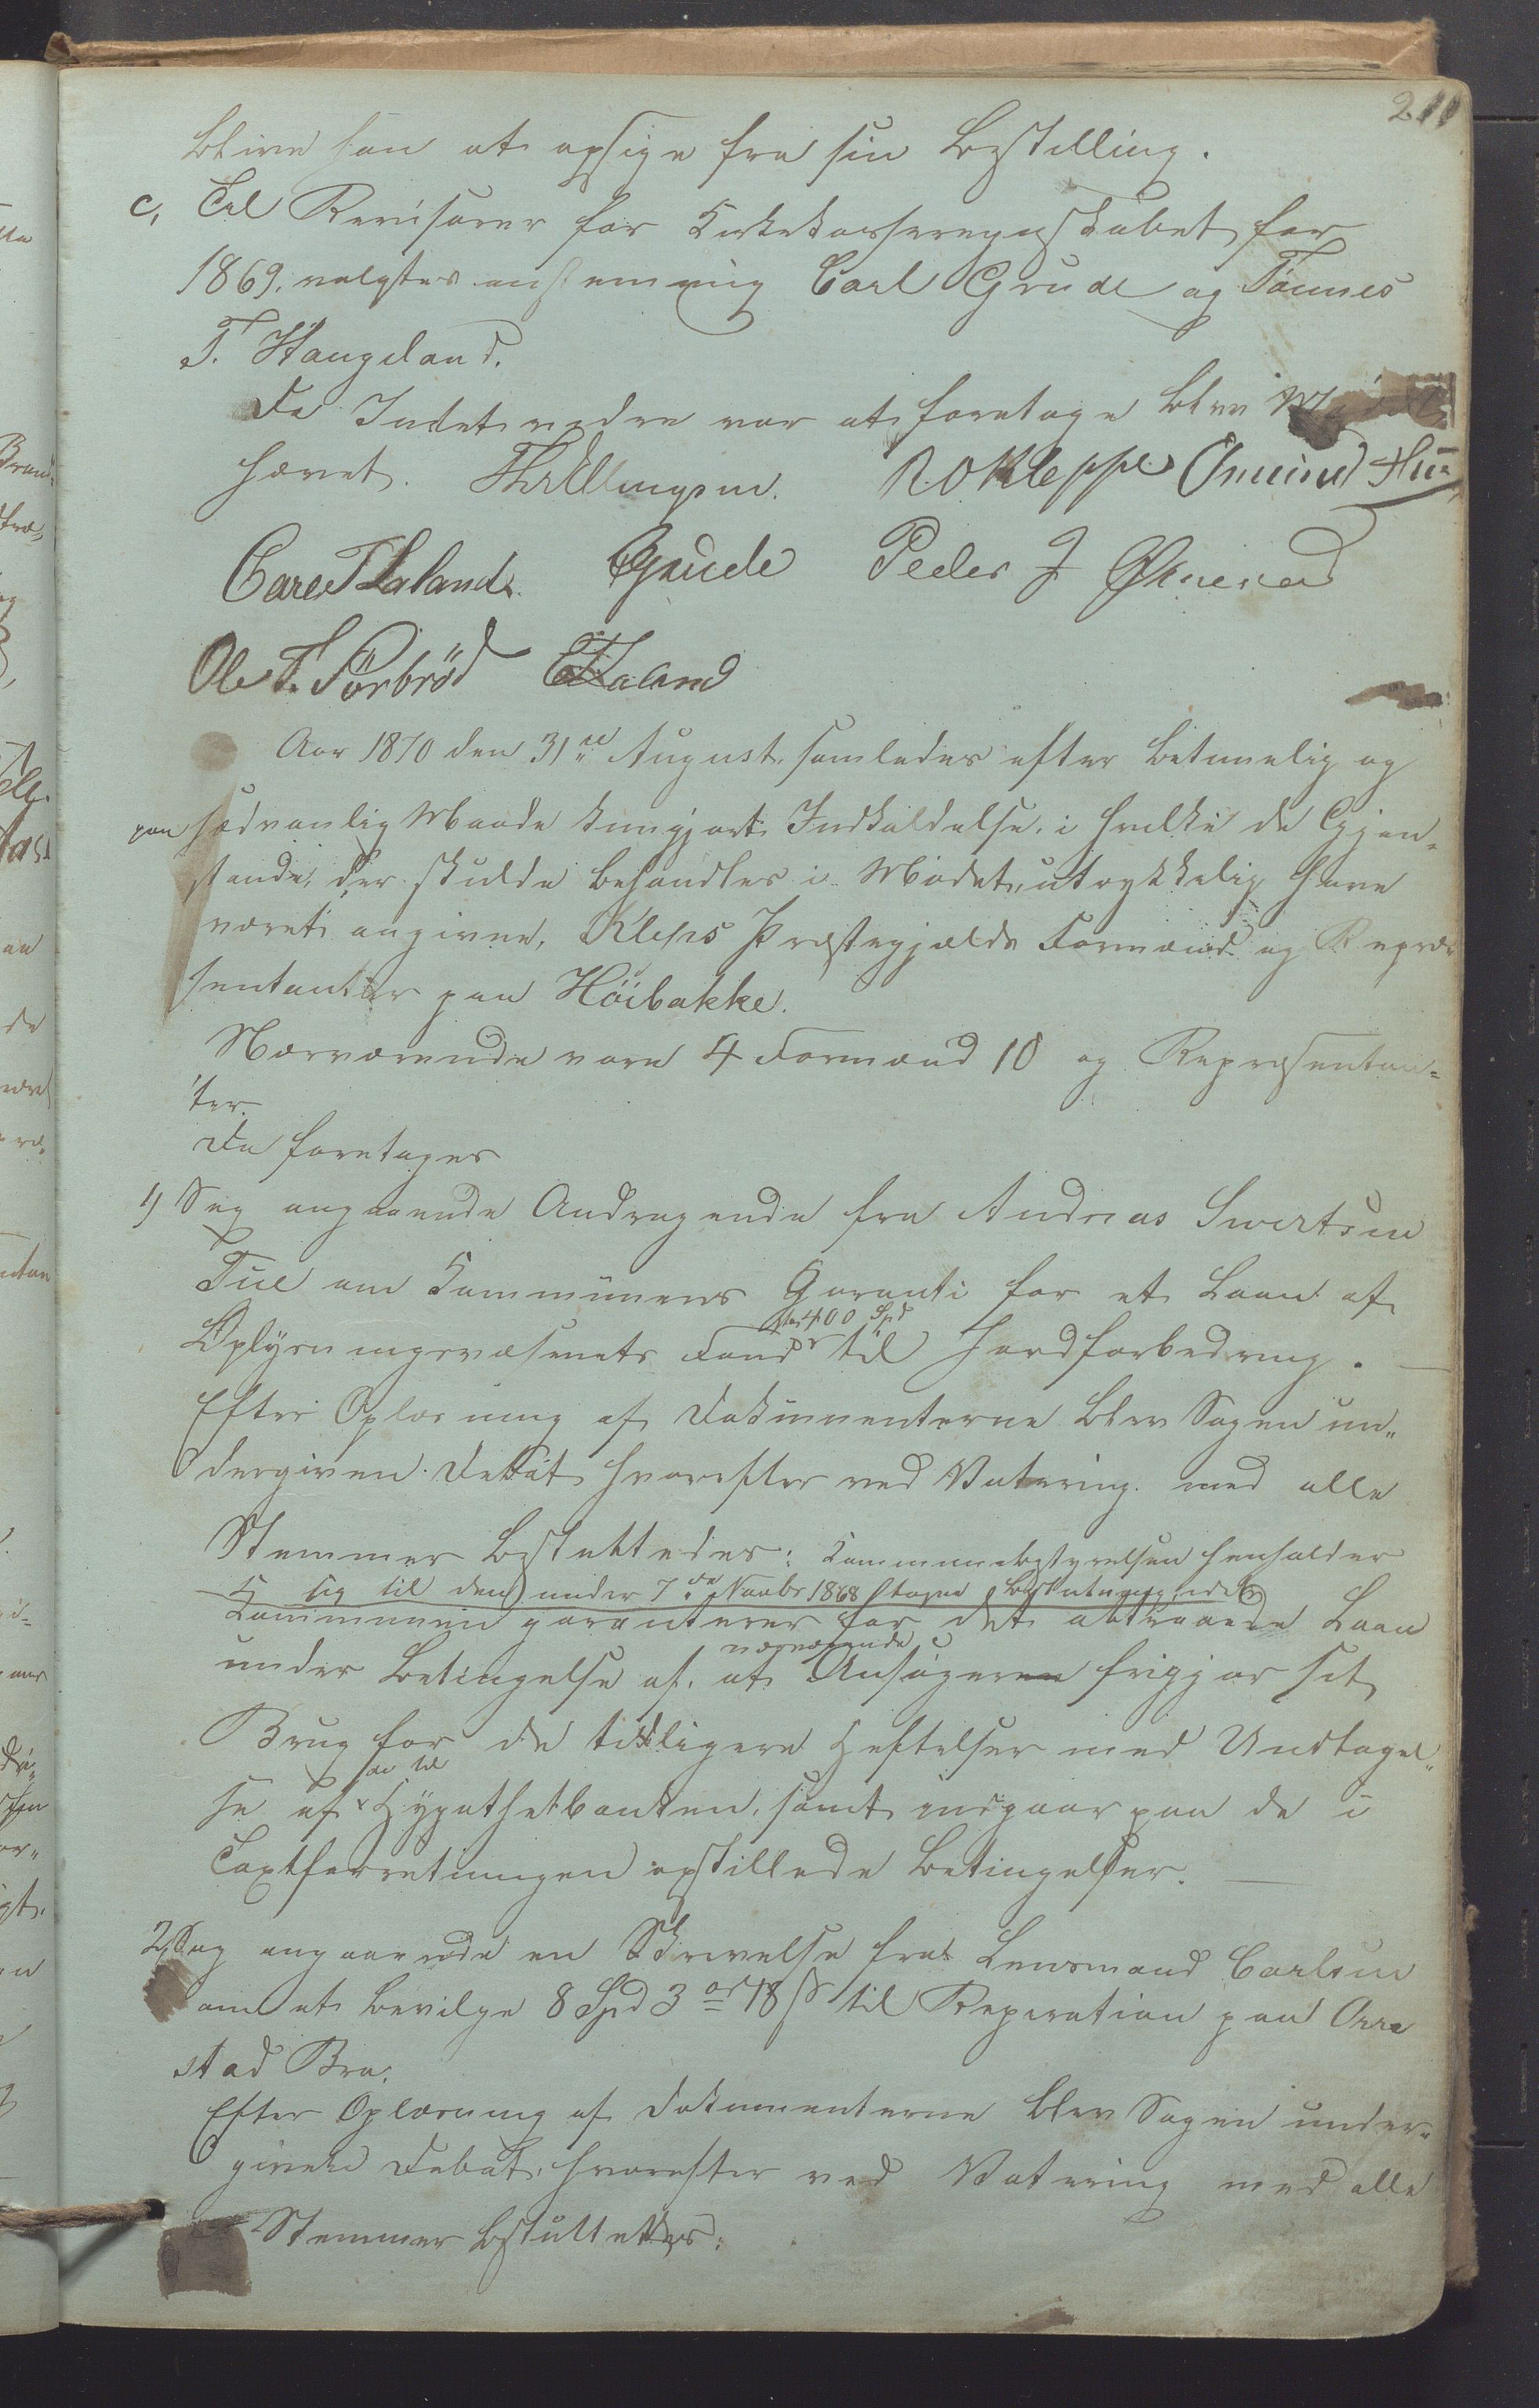 211
blive han at opsige fra sin Bestilling.
c, Til Revisorer for Kirkekasseregnskabet for
1869, valgtes enstemmig Carl Grude og Tønnes
T. Haugeland.
Da Intet videre var at foretage blev Mødet
hævet. R O Kleppe Omund Hus
Carl T Laland. Grude Peder J Øxnevad
Ole T. Sörbröd E Kaland
Aar 1870 den 31te August samledes efter betimelig og
paa sædvanlig Maade kungjort Indkaldelse, i hvilke de Gjen-
stande, der skulde behandles i Mødet, utrykkelig have
været angivne, Kleps Præstegjælds Formænd og Repræ-
sentanter paa Höibakke.
Nærværende vare 4 Formænd 10 og Repræsentan-
ter.
Da foretages
1) Sag angaaende Andragende fra Andreas Sivertsen
Tue om Kommunens Garanti for et Laan af
400 Spd
Oplysningsvæsenets Fond til Jordforbedring.
Efter Oplæsning af Dokumenterne blev Sagen un-
dergiven Debat hvorefter ved Votering med alle
Stemmer besluttedes: Kommunebestyrelsen henholder
sig til den under 7de Novbr 1868 tagne Beslutning idet
Kommunen garanterer for det attraaede Laan
nærværende
under Betingelse af, at Ansøgeren frigjør sit
Brug for de tidligere Heftelser med Undtagel-
de til
se af Hypothekbanken, samt indgaar paa de i
Taxtforretningen opstillede Betingelser.
2, Sag angaaende en Skrivelse fra Lensmand Carlsen
om at bevilge 8 Spd 3 ort 18 s til Reperation paa Orre
stad Bro.
Efter Oplæsning af Dokumenterne blev Sagen under-
given Debat, hvorefter ved Votering med alle
Stemmer besluttedes: